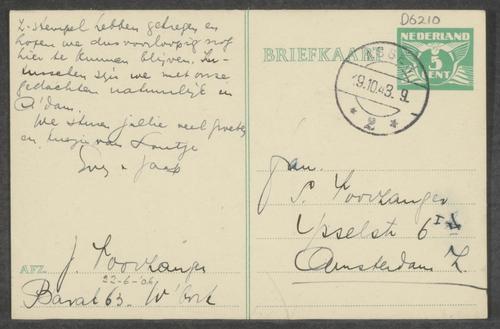 Z-stempel hebben gekregen en
hopen we dus voorloopig nog
hier te kunnen blijven. In-
tusschen zijn we met onze
gedachten natuurlijk in
A'dam.
We sturen jullie veel groeten
en kusjes van Loutje
Jaap
AFZ. J. Voorzanger
22-6-'06
Barak 63. W'bork
D6210
BRIEFKAART
NEDERLAND
5
CENT
19.10.43. 9.
2
Fam.
S. Voorzanger
Ysselstr 6 I
Amsterdam Z.